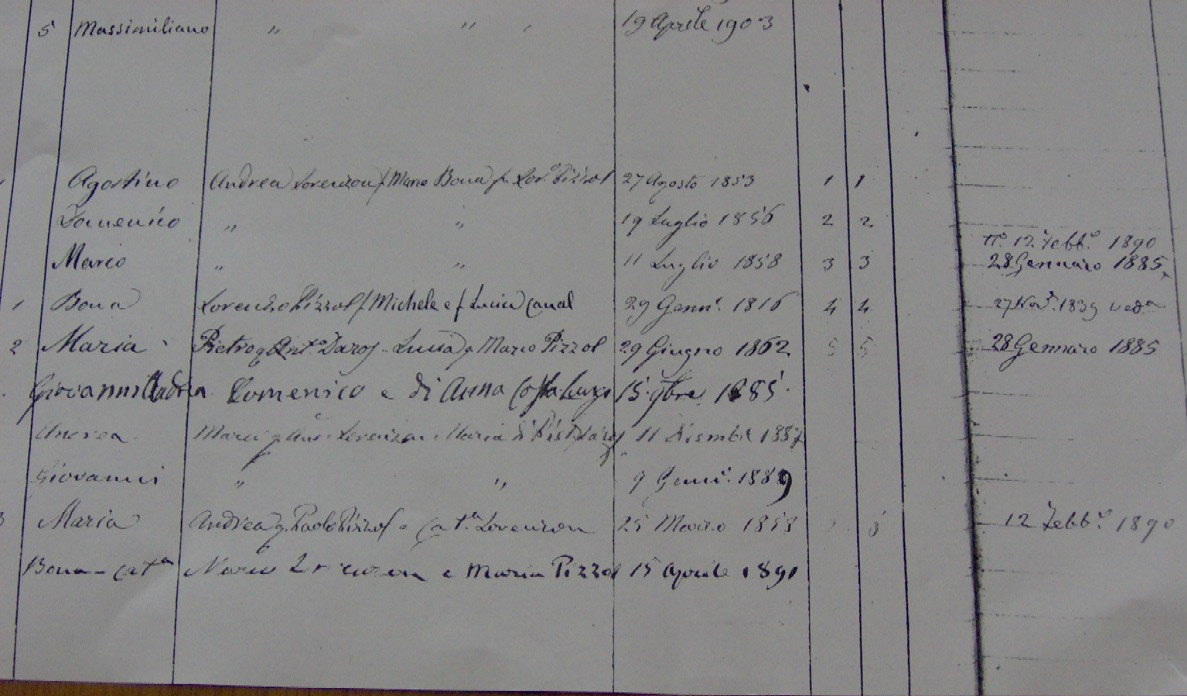 5 Massimiliano " " " 19 Aprile 1903
Agostino Andrea Lorenzon f Marco Bona f Lor° Pizzol 27 Agosto 1853 1 1
Domenico " " 19 Luglio 1856 2 2
12 Febb° 1890
Marco " " 11 Luglio 1858 3 3 28 Gennaro 1885
1 Bona Lorenzo Pizzol f Michele e f Lucia Canal 29 Genn° 1816 4 4 27 Nov° 1839
2 Maria Pietro q Ant° Daros Lucia q Marco Pizzol 29 Giugno 1862 5 5 28 Gennaro 1885
Giovanni Andrea Domenico e di Anna 15 9bre 1885
Andrea Marco q And Lorenzon Maria di 11 Dicembre 1887
Giovanni " " 9 1889
3 Maria Andrea q Paolo Pizzol e Cat^a Lorenzon 25 1858 12 Febb° 1890
Bona - Cat^a Marco e Maria Pizzol 15 Aprile 1891